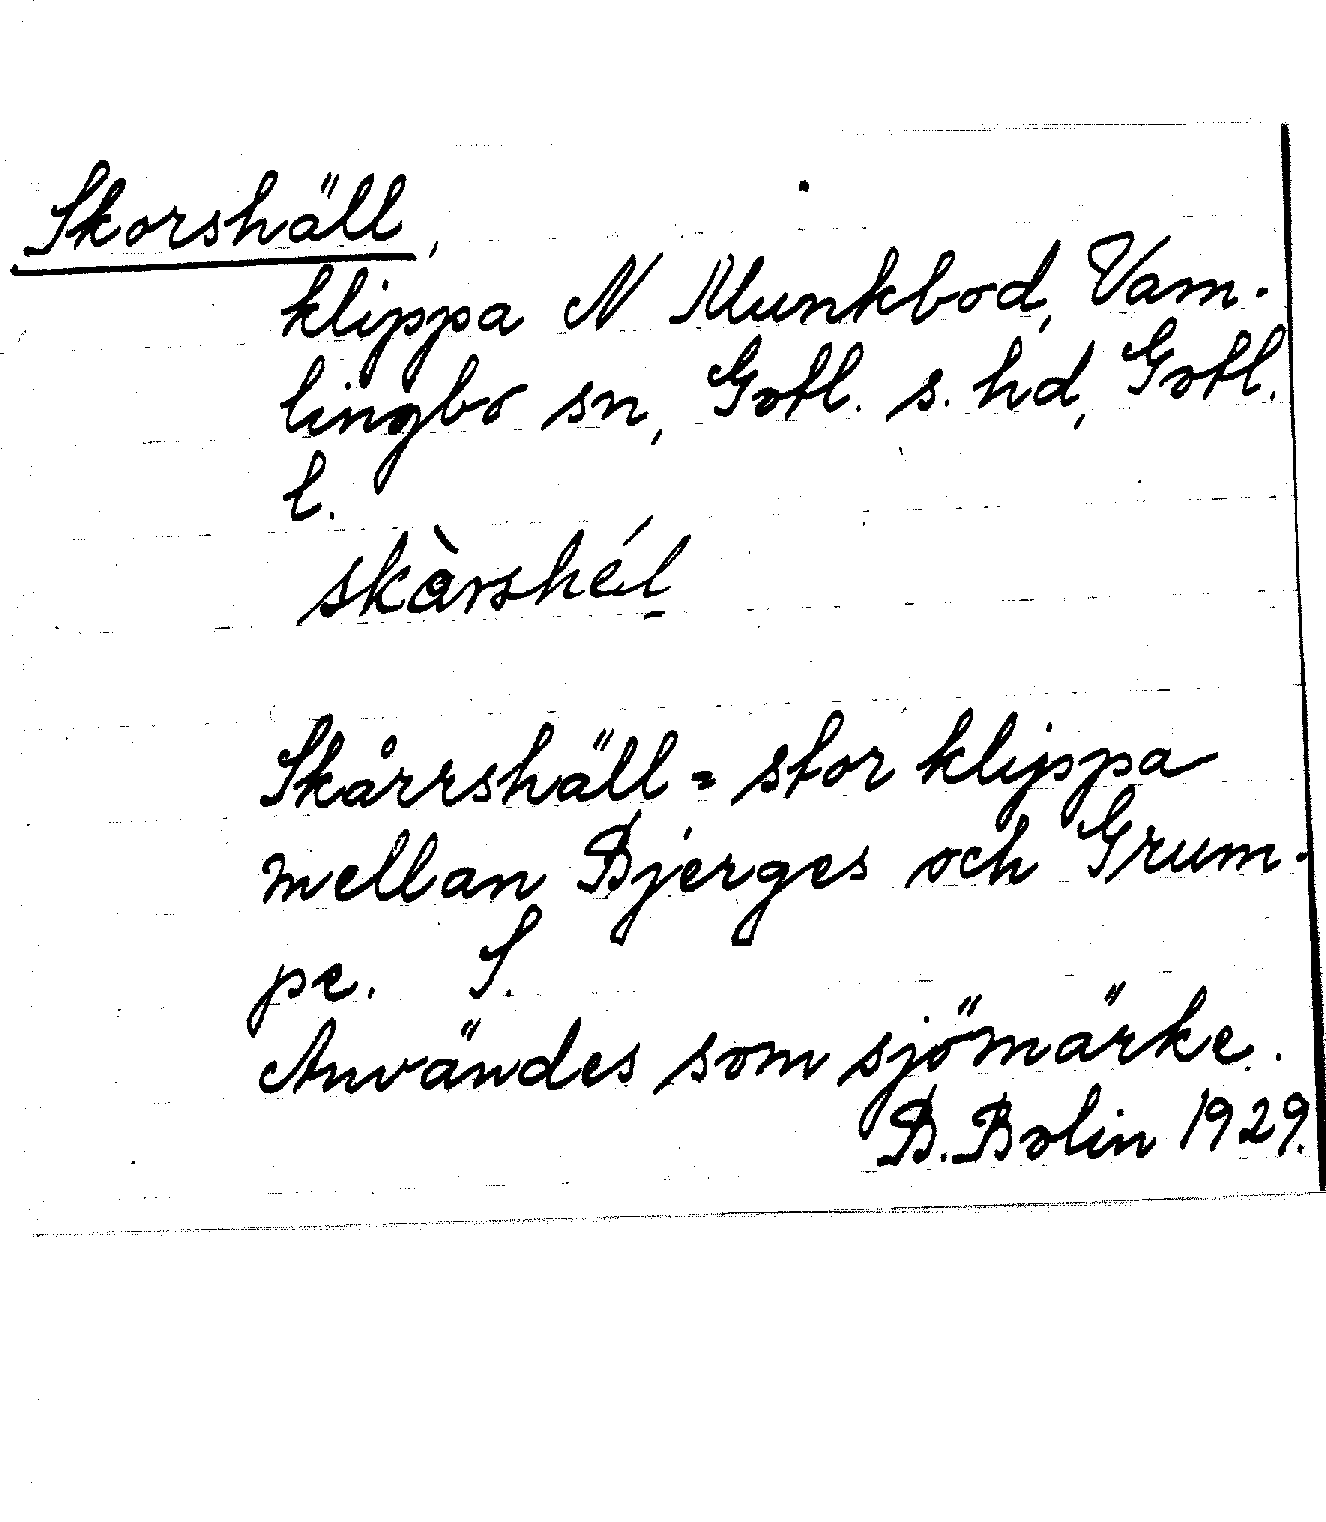 Skorshäll,
klippa N Munkbod, Vam-
lingbo sn, Gotl. s. hd, Gotl.
l.
skàrshél
Skårrshäll = stor klippa
mellan Bjerges och Grum-
pe. S.
Användes som sjömärke.
B. Bolin 1929.